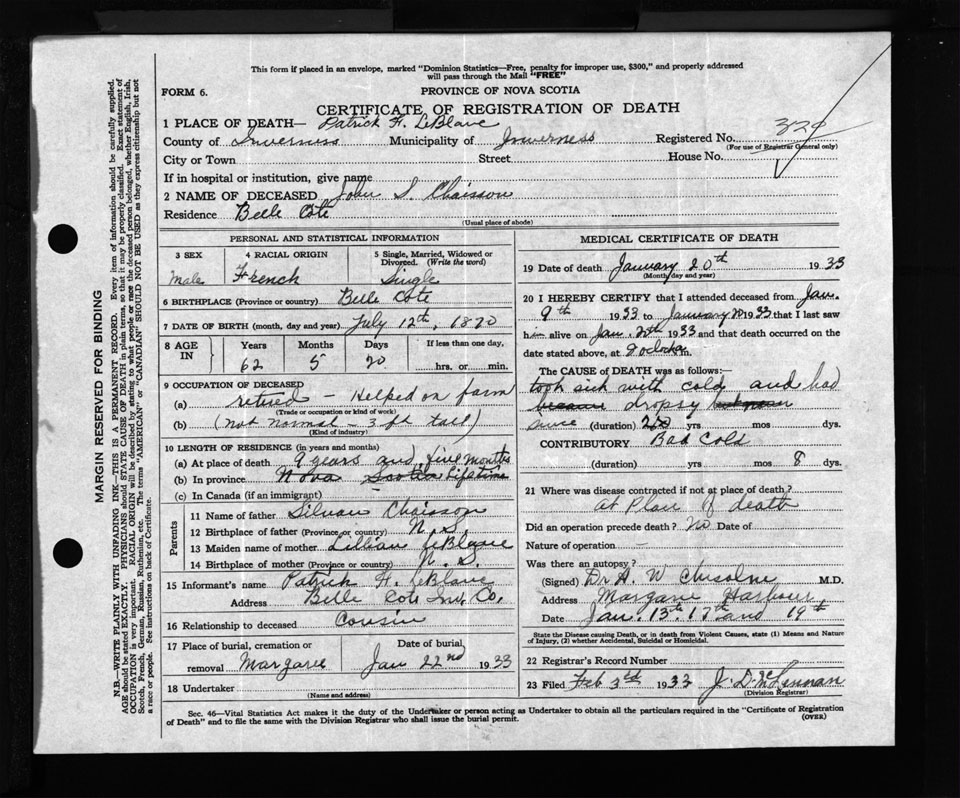 This form if placed in an envelope, marked "Dominion Statistics—Free, penalty for improper use, $300," and properly addressed
will pass through the Mail "FREE"
FORM 6.
PROVINCE OF NOVA SCOTIA
CERTIFICATE OF REGISTRATION OF DEATH
1 PLACE OF DEATH— Patrick H. LeBlanc
County of Inverness Municipality of Inverness Registered No.
(For use of Registrar General only)
City or Town Street House No.
If in hospital or institution, give name
2 NAME OF DECEASED John S. Chaisson
Residence Belle Cote
(Usual place of abode)
PERSONAL AND STATISTICAL INFORMATION
3 SEX 4 RACIAL ORIGIN 5 Single, Married, Widowed or
Divorced. (Write the word)
Male French Single
6 BIRTHPLACE (Province or country) Belle Cote
7 DATE OF BIRTH (month, day and year) July 12th, 1870
8 AGE IN Years Months Days If less than one day,
62 5 20 hrs. or min.
9 OCCUPATION OF DECEASED
(a) retired - Helped on farm
(Trade or occupation or kind of work)
(b) (not normal - 3 ft tall)
(Kind of industry)
10 LENGTH OF RESIDENCE (in years and months)
(a) At place of death 9 years and five months
(b) In province Nova Scotia lifetime
(c) In Canada (if an immigrant)
Parents
11 Name of father Silvan Chaisson
12 Birthplace of father (Province or country) N.S.
13 Maiden name of mother Lillian LeBlanc
14 Birthplace of mother (Province or country) N.S.
15 Informant's name Patrick H. LeBlanc
Address Belle Cote Inv. Co.
16 Relationship to deceased Cousin
17 Place of burial, cremation or Date of burial
removal Margaree Jan 22nd 1933
18 Undertaker
(Name and address)
MEDICAL CERTIFICATE OF DEATH
19 Date of death January 20th 1933
(Month, day and year)
20 I HEREBY CERTIFY that I attended deceased from Jan.
9th 1933 to January 20 1933 that I last saw
him alive on Jan. 20th 1933 and that death occurred on
date stated above, at 9 oclock m.
The CAUSE of DEATH was as follows:—
took sick with cold and had
became dropsy
since (duration) yrs mos dys.
CONTRIBUTORY Bad Cold
(duration) yrs mos 8 dys.
21 Where was disease contracted if not at place of death?
at Place of death
Did an operation precede death? No Date of
Nature of operation —
Was there an autopsy?
(Signed) Dr A. W Chisolm M.D.
Address Margaree Harbour
Date Jan. 13th 17th and 19th
State the Disease causing Death, or in death from Violent Causes, state (1) Means and Nature
of Injury, (2) whether Accidental, Suicidal or Homicidal.
22 Registrar's Record Number
23 Filed Feb 3rd 1933 J. D. McLennan
(Division Registrar)
Sec. 46—Vital Statistics Act makes it the duty of the Undertaker or person acting as Undertaker to obtain all the particulars required in the "Certificate of Registration
of Death" and to file the same with the Division Registrar who shall issue the burial permit.
(OVER)
MARGIN RESERVED FOR BINDING
N.B.—WRITE PLAINLY WITH UNFADING INK—THIS IS A PERMANENT RECORD. Every item of information should be carefully supplied.
AGE should be stated EXACTLY. PHYSICIANS should STATE CAUSE OF DEATH in plain terms, so that it may be properly classified. Exact statement of
OCCUPATION is very important. RACIAL ORIGIN will be described by stating to what people or race the deceased person belonged, whether English, Irish,
Scotch, French, German, Russian, Ruthenian, etc. The terms "AMERICAN" or "CANADIAN" SHOULD NOT BE USED as they express citizenship but not
a race or people. See instructions on back of Certificate.